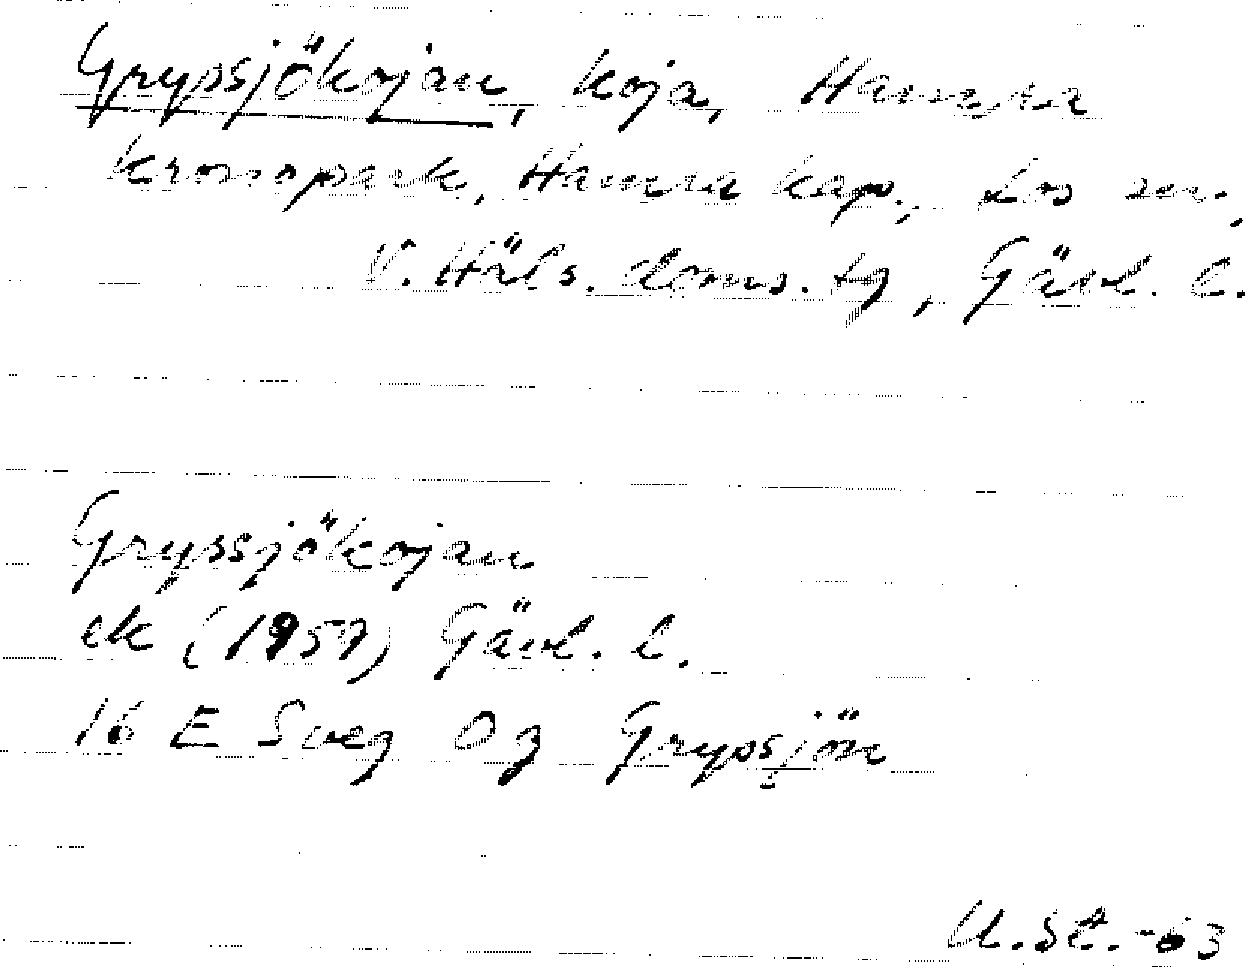 Grypsjökojan, koja, Hamra
kronopark, Hamra kap., Los sn,
V. Häls. doms. tg, Gävl. l.
Grypssjökojan
ek (1957) Gävl. l.
16 E Sveg Og Grypsjön
U. St. -63